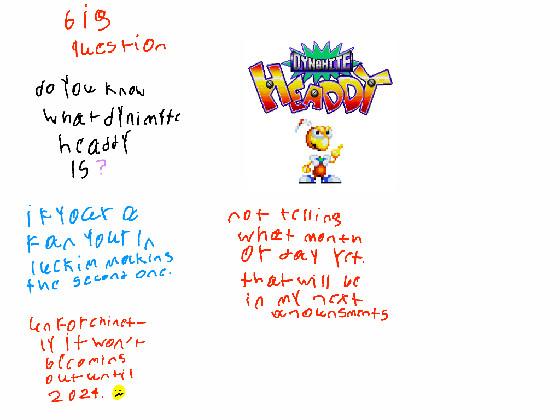 big
question
do you know
what dynimite
headdy
is?
if your a
fan your in
luck im making
the second one.
unforchinet-
ly it won't
be coming
out until
2024.
DYNAMITE
HEADDY
not telling
what month
or day yet.
that will be
in my next
anounsments